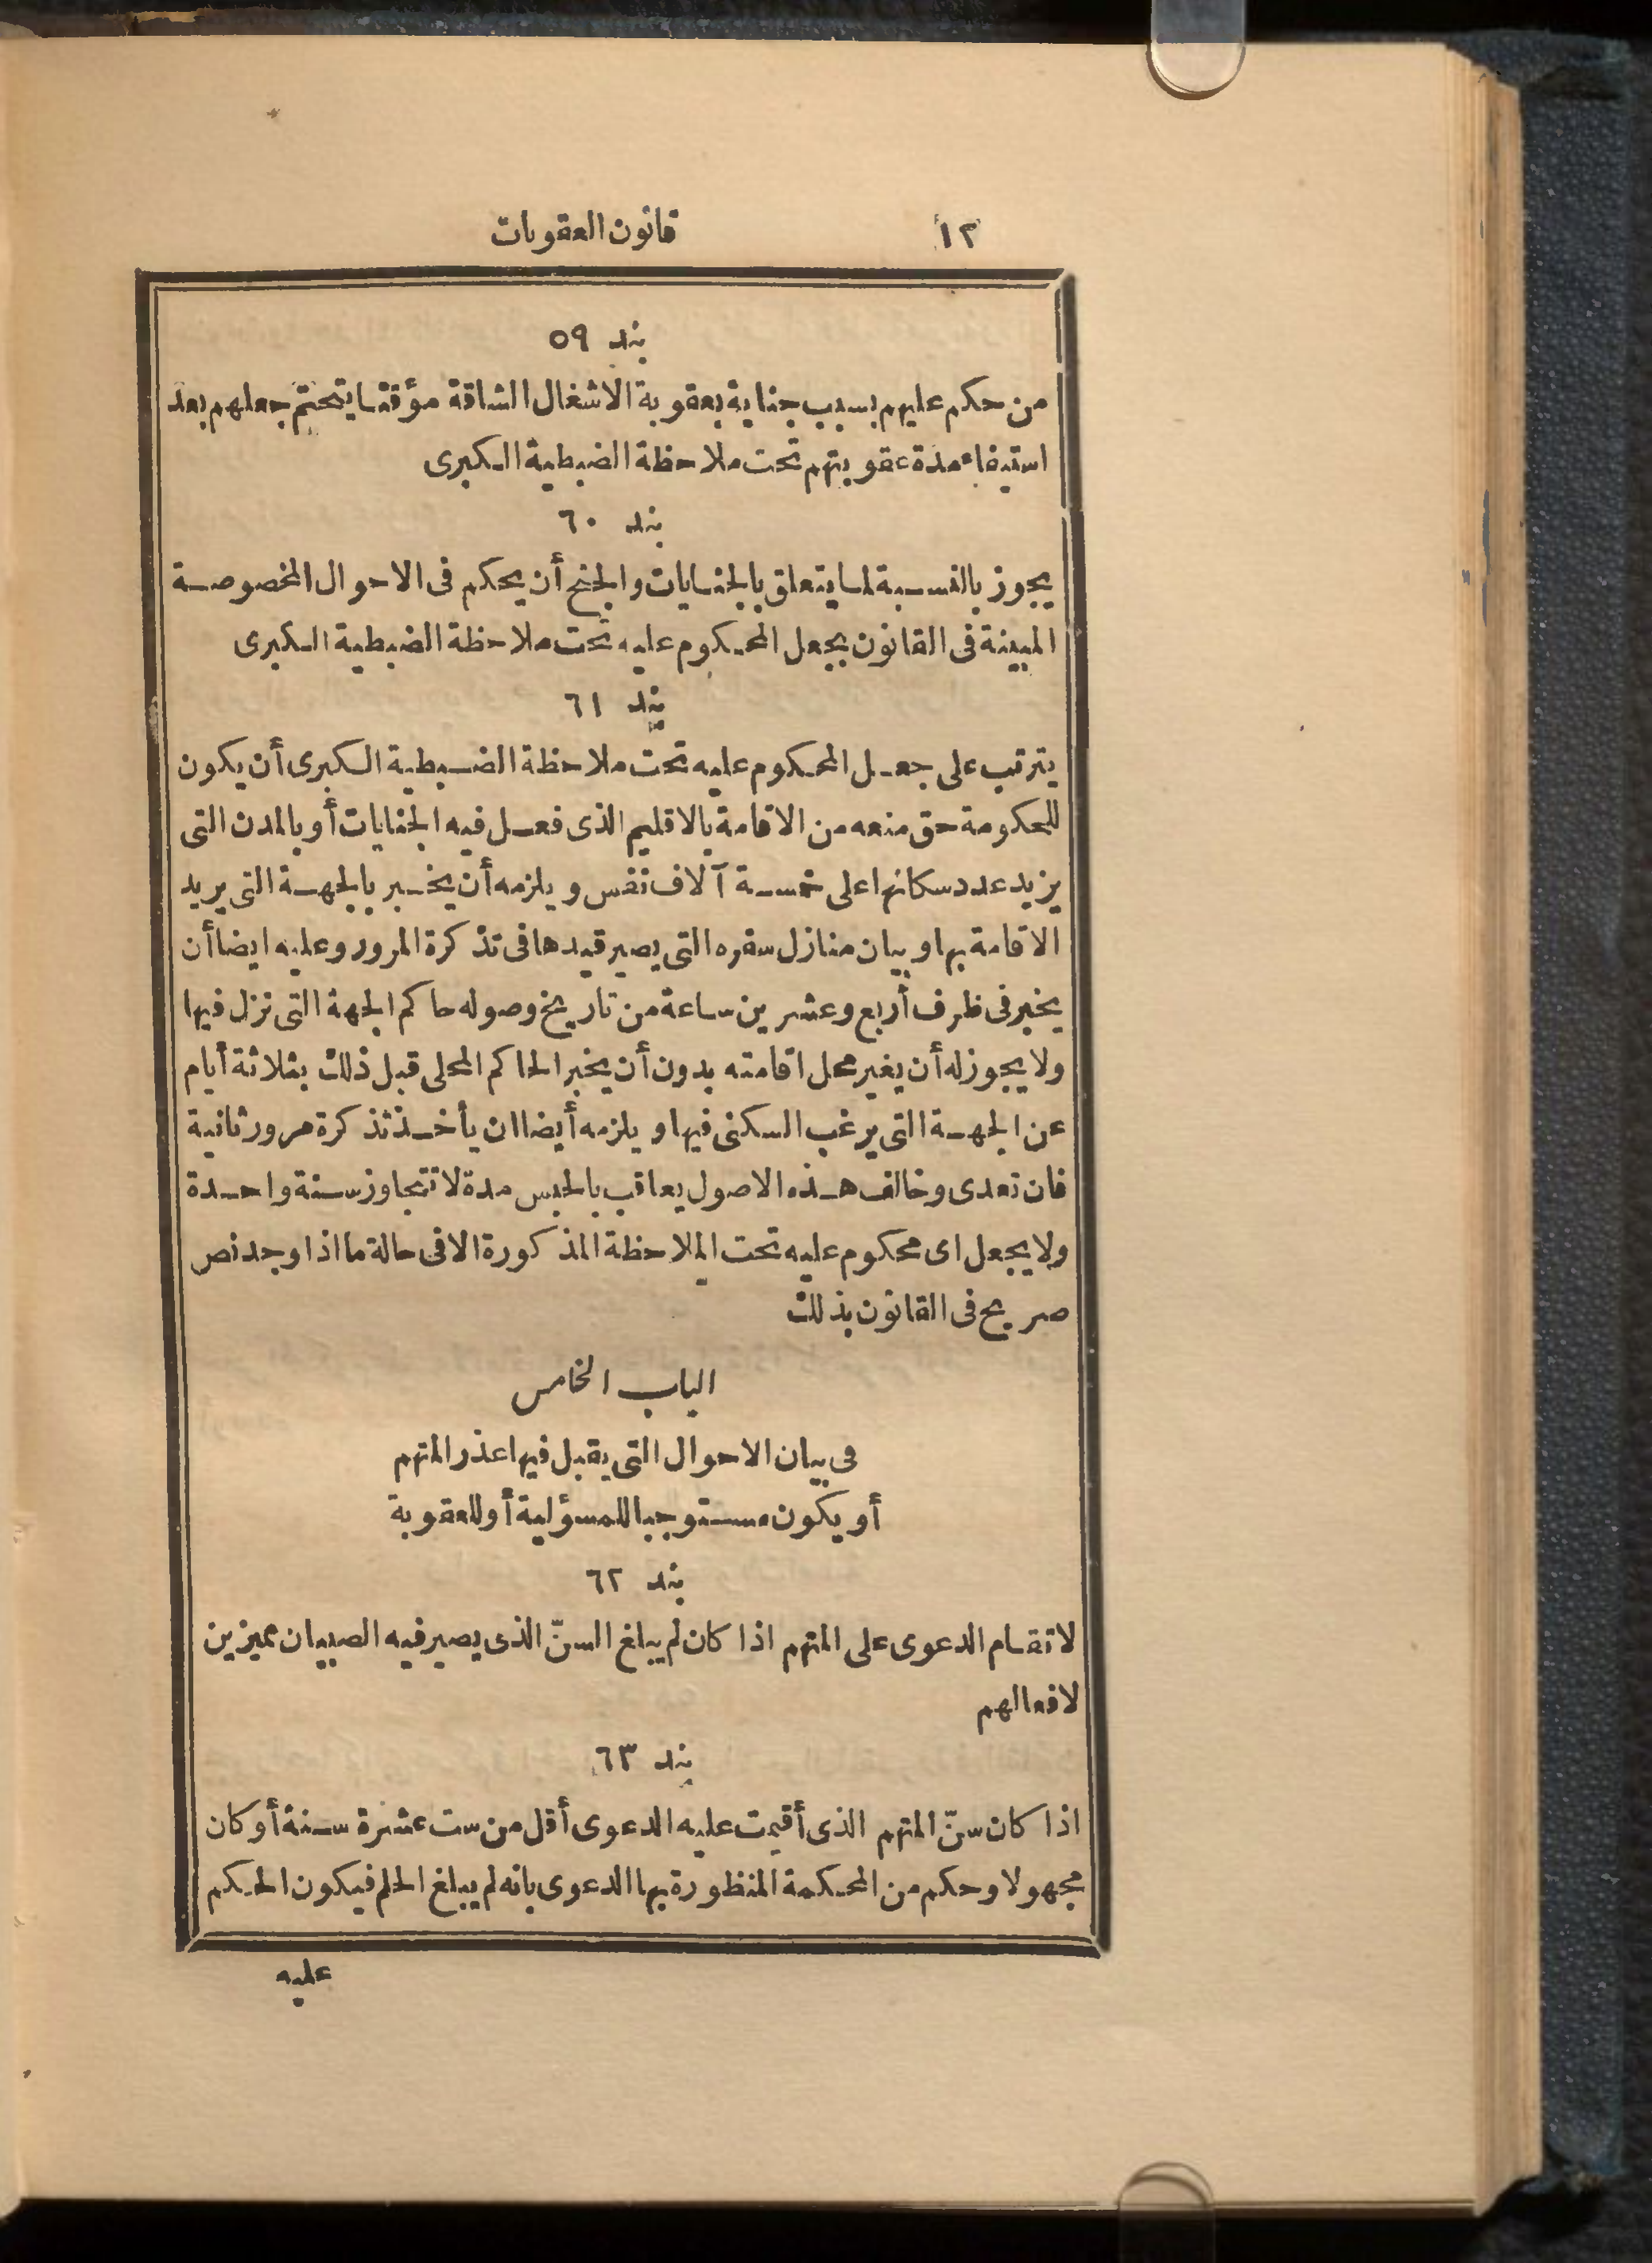 ١٢ قانون العقوبات
بند ٥٩
من حكم عليهم بسبب جناية بعقوبة الاشغال الشاقة مؤقتا يتحتم جعلهم بعد
استيفاء مدة عقوبتهم تحت ملاحظة الضبطية الكبرى
بند ٦٠
يجوز بالنسبة لما يتعلق بالجنايات والجنح أن يحكم فى الاحوال المخصوصة
المبينة فى القانون بجعل المحكوم عليه تحت ملاحظة الضبطية الكبرى
بند ٦١
يترتب على جعل المحكوم عليه تحت ملاحظة الضبطية الكبرى أن يكون
للحكومة حق منعه من الاقامة بالاقليم الذى فعل فيه الجنايات أو بالمدن التى
يزيد عدد سكانها على خمسة آلاف نفس ويلزمه أن يخبر بالجهة التى يريد
الاقامة بها وبيان منازل سفره التى يصير قيدها فى تذكرة المرور وعليه ايضا أن
يخبر فى ظرف أربع وعشرين ساعة من تاريخ وصوله حاكم الجهة التى نزل فيها
ولا يجوز له أن يغير محل اقامته بدون أن يخبر الحاكم المحلى قبل ذلك بثلاثة أيام
عن الجهة التى يرغب السكنى فيها ويلزمه أيضا ان يأخذ تذكرة مرور ثانية
فان تعدى وخالف هذه الاصول يعاقب بالحبس مدة لا تتجاوز سنة واحدة
ولا يجعل اى محكوم عليه تحت الملاحظة المذكورة الا فى حالة ما اذا وجد نص
صريح فى القانون بذلك
الباب الخامس
فى بيان الاحوال التى يقبل فيها عذر المتهم
أو يكون مستوجبا للمسؤلية أو للعقوبة
بند ٦٢
لا تقام الدعوى على المتهم اذا كان لم يبلغ السنّ الذى يصير فيه الصبيان مميزين
لافعالهم
بند ٦٣
اذا كان سنّ المتهم الذى أقيمت عليه الدعوى أقل من ست عشرة سنة أو كان
مجهولا وحكم من المحكمة المنظورة بها الدعوى بانه لم يبلغ الحلم فيكون الحكم
عليه